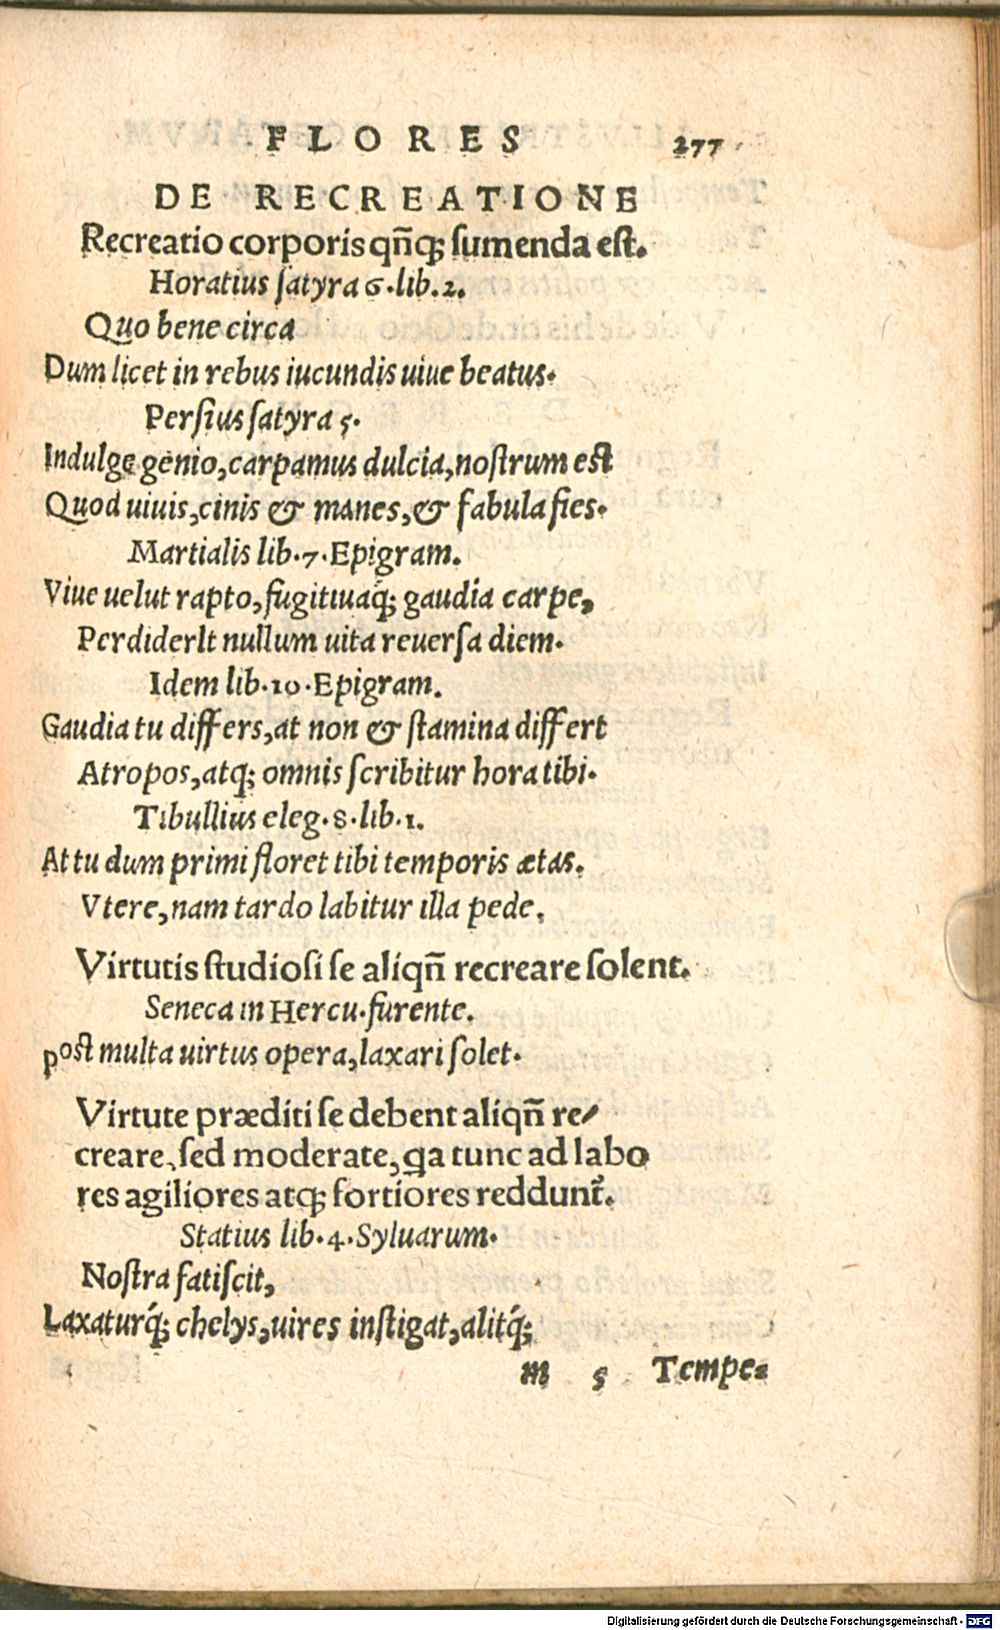 FLORES 277
DE RECREATIONE
Recreatio corporis qñq; sumenda est.
Horatius satyra 6.lib.2.
Quo bene circa
Dum licet in rebus iucundis uiue beatus.
Persius satyra 5.
Indulge genio,carpamus dulcia,nostrum est
Quod uiuis,cinis & manes,& fabula fies.
Martialis lib.7.Epigram.
Viue uelut rapto,fugitiuaq́; gaudia carpe,
PerdiderIt nullum uita reuersa diem.
Idem lib.10.Epigram.
Gaudia tu differs,at non & stamina differt
Atropos,atq; omnis scribitur hora tibi.
Tibullius eleg.8.lib.1.
At tu dum primi floret tibi temporis ætas.
Vtere,nam tardo labitur illa pede.
Virtutis studiosi se aliqñ recreare solent.
Seneca in Hercu.furente.
post multa uirtus opera,laxari solet.
Virtute præditi se debent aliqñ re/
creare,sed moderate,qa tunc ad labo
res agiliores atq; fortiores reddunt̃.
Statius lib.4.Syluarum.
Nostra fatiscit,
Laxaturq́; chelys,uires instigat,alitq́;
m 5 Tempe=
Digitalisierung gefördert durch die Deutsche Forschungsgemeinschaft - DFG